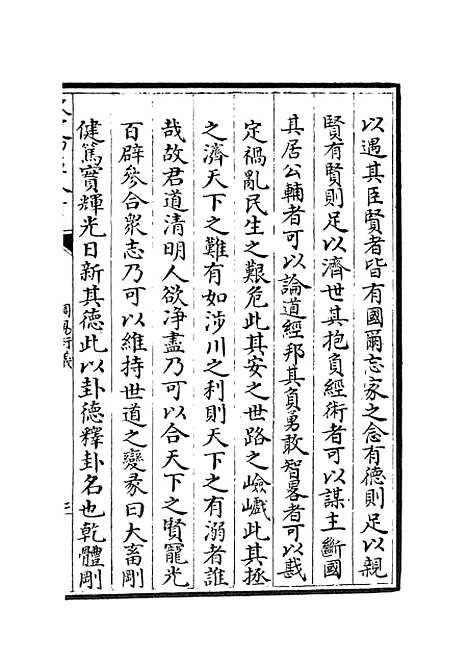 以遇其臣賢者皆有國爾忘家之念有德則足以親
賢有賢則足以濟世其抱負經術者可以謀主斷國
其居公輔者可以論道經邦其負勇敢智畧者可以戡
定禍亂民生之艱危此其安之世路之嶮巇此其拯
之濟天下之難有如涉川之利則天下之有溺者誰
哉故君道清明人欲净盡乃可以合天下之賢寵光
百辟參合衆志乃可以維持世道之變彖曰大畜剛
健篤實輝光日新其德此以卦德釋卦名也乾體剛
周易衍義
三